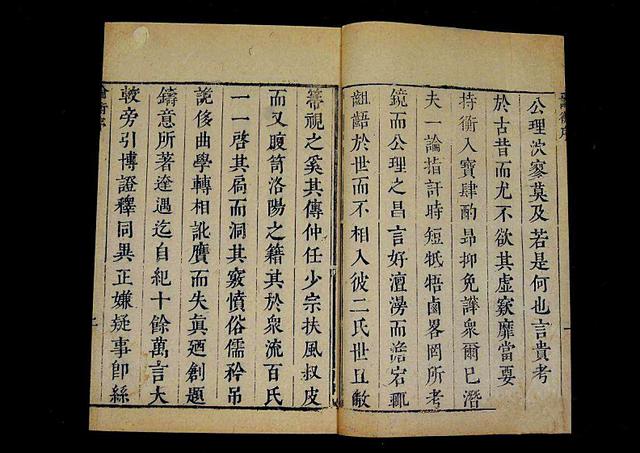 論衡序
一
公理泬寥莫及若是何也言貴考
於古昔而尤不欲其虛窽靡當要
持衡入寶肆酌昂抑免譁衆爾已潛
夫一論指訐時短牴牾鹵畧罔所考
鏡而公理之昌言好澶漫而澹宕輒
齟齬於世而不相入彼二氏世且敝
箒視之奚其傳仲任少宗扶風叔皮
而又腹笥洛陽之籍其於衆流百氏
一一啓其扃而洞其窽憤俗儒矜吊
詭侈曲學轉相訛贋而失眞迺創題
鑄意所著逢遇迄自紀十餘萬言大
較旁引博證釋同異正嫌疑事卽絲
論衡序
二